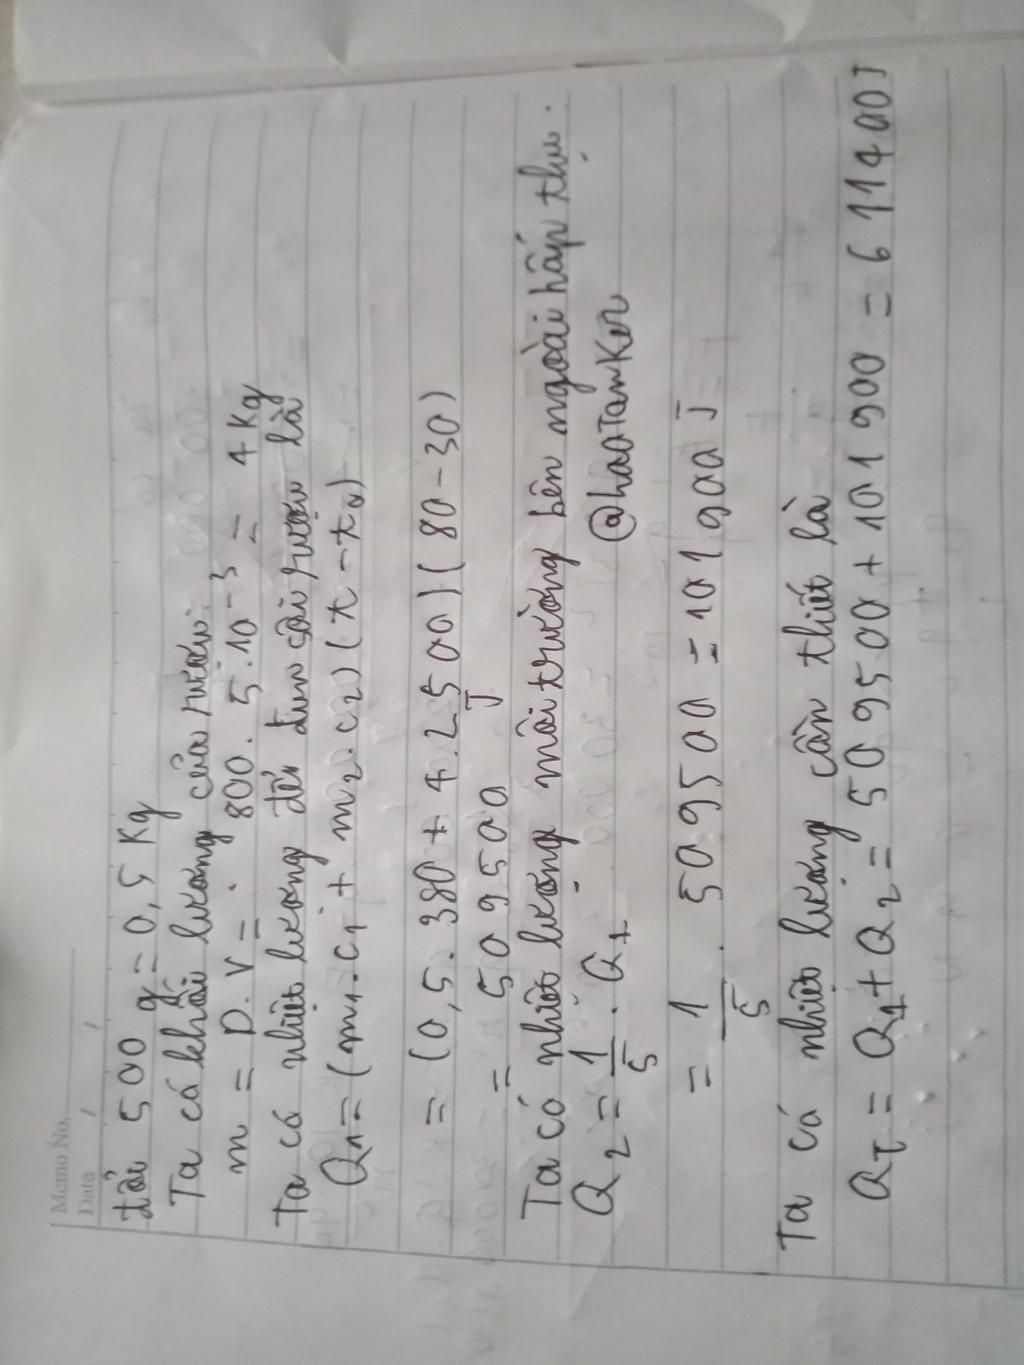 Memo No.
Date / /
đổi 500 g = 0,5 Kg
Ta có khối lượng của rượu:
m = D.V = 800.5.10-3 = 4 Kg
Ta có nhiệt lượng để đun sôi rượu là
Q1 = (m1.c1 + m2.c2)(t - t0)
= (0,5.380 + 4.2500)(80-30)
= 509500 J
Ta có nhiệt lượng môi trường bên ngoài hấp thụ.
Q2 = 1/5 . Q1 @haoTamKer
= 1/5 . 509500 = 101900 J
Ta có nhiệt lượng cần thiết là
QT = Q1 + Q2 = 509500 + 101900 = 611400J